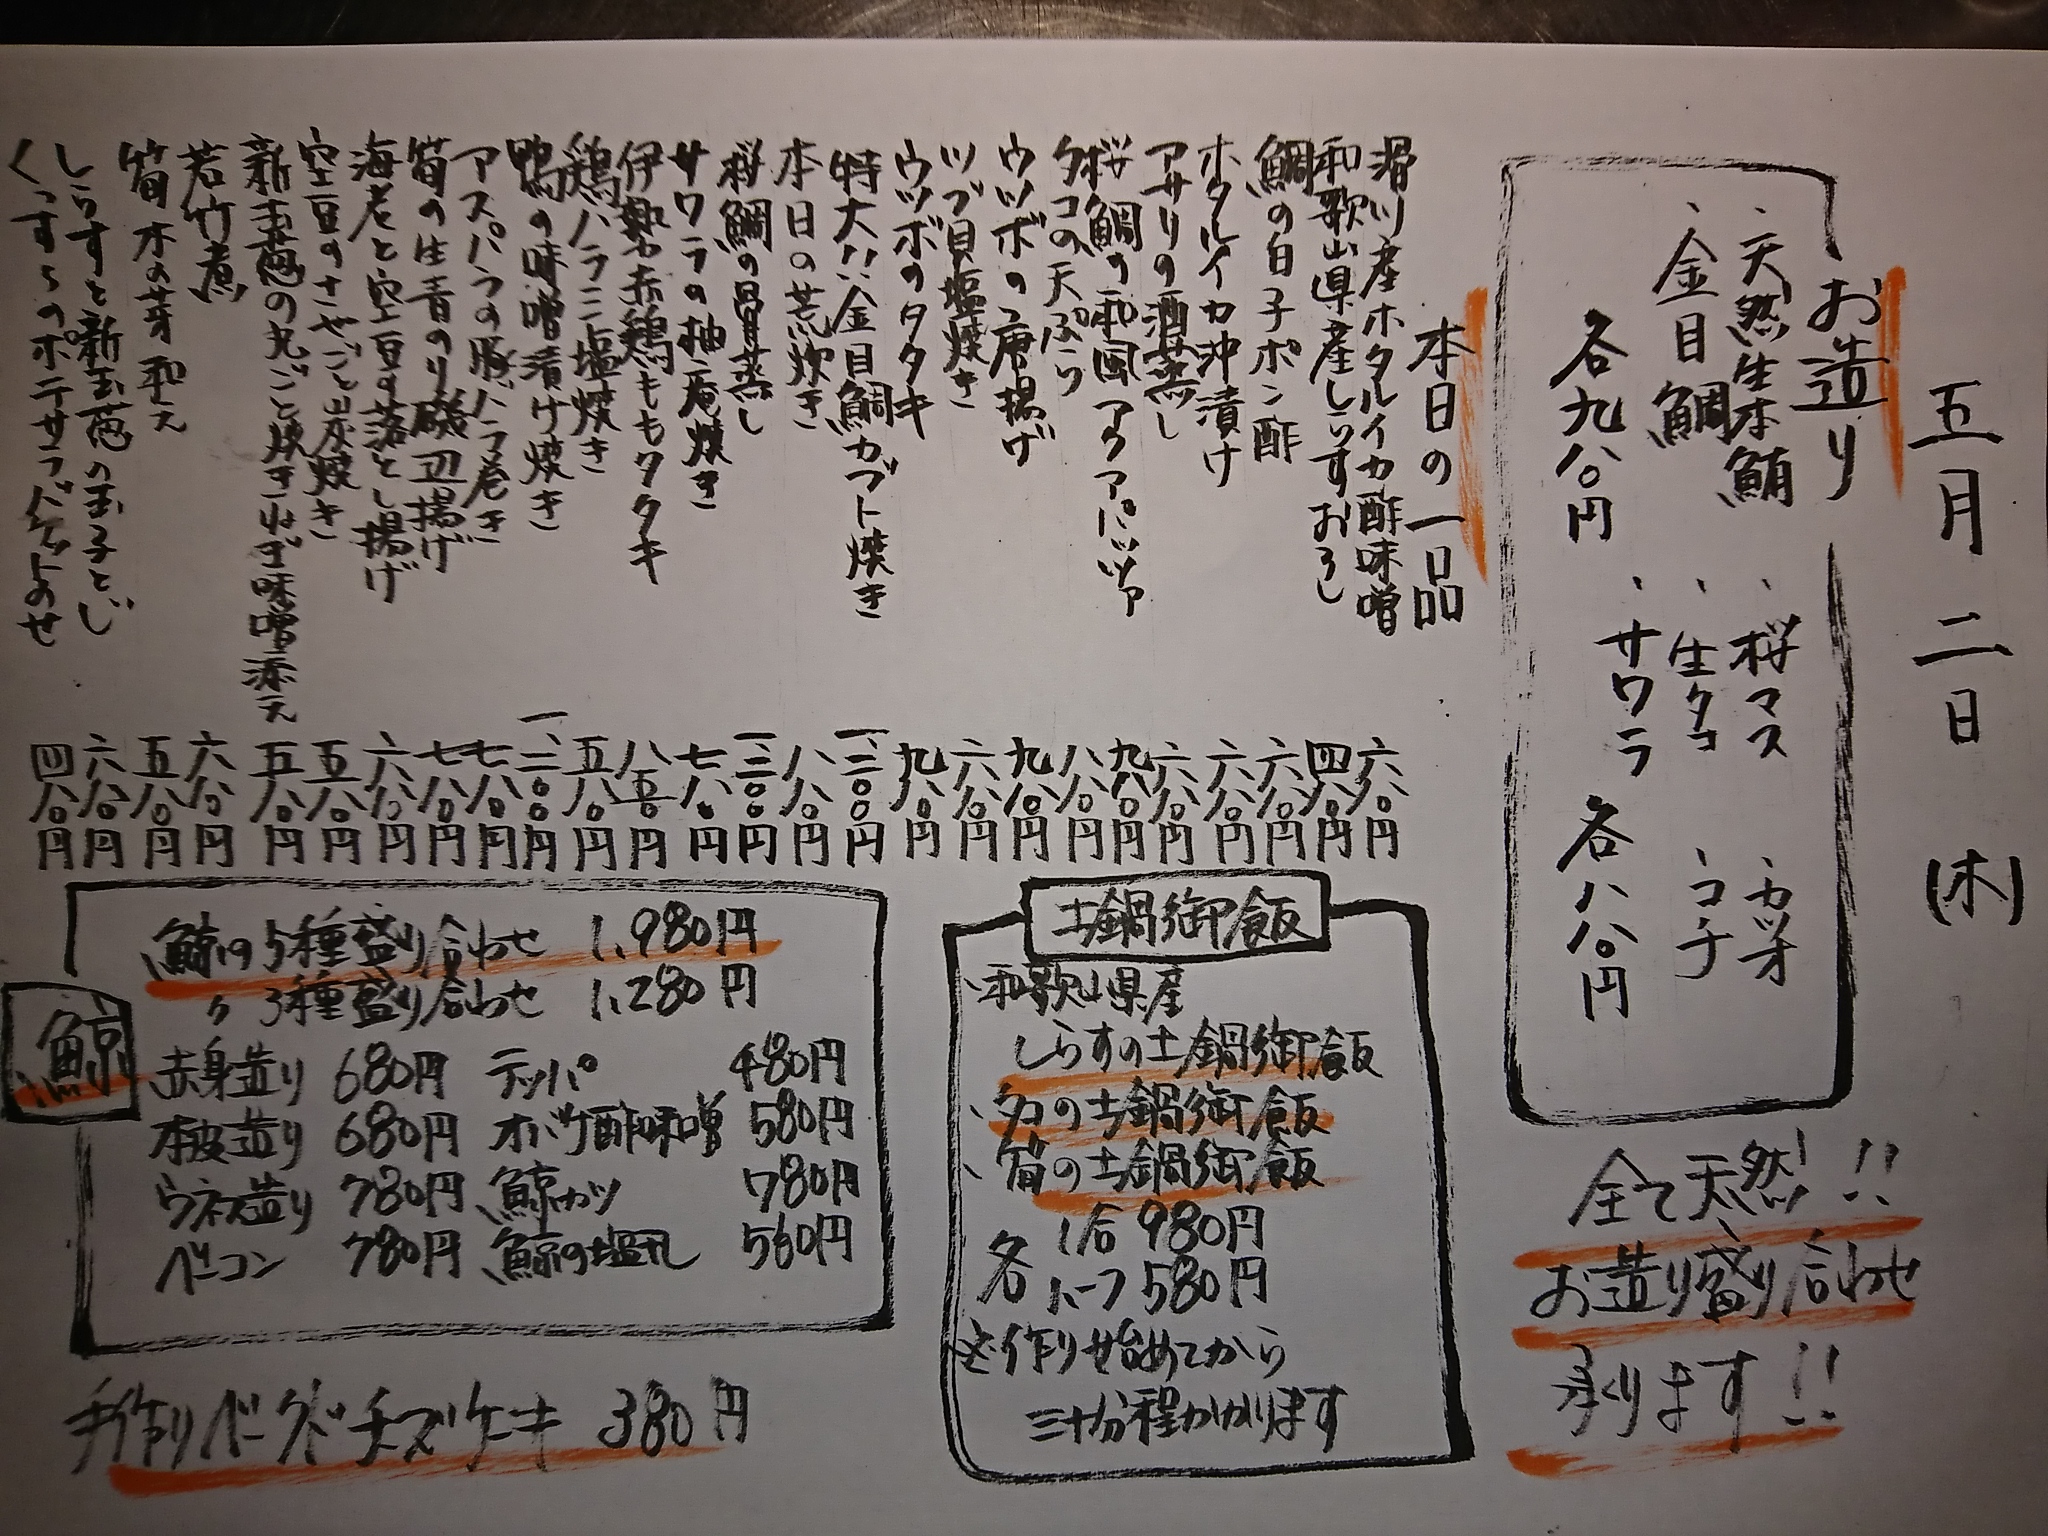 五月二日(木)
お造り
、天然生本鮪
、金目鯛
各九八〇円
、桜マス
、生タコ
、サワラ
、カツオ
、コチ
各八八〇円
全て天然!!
お造り盛り合わせ
承ります!!
本日の一品
滑川産ホタルイカ酢味噌 六八〇円
和歌山県産しらすおろし 四八〇円
鯛の白子ポン酢 六八〇円
ホタルイカ沖漬け 六八〇円
アサリの酒蒸し 六八〇円
桜鯛の和風アクアパッツァ 九八〇円
タコの天ぷら 八八〇円
ウツボの唐揚げ 九八〇円
ツブ貝塩焼き 六八〇円
ウツボのタタキ 九八〇円
特大!!金目鯛カブト焼き 一、二〇〇円
本日の荒炊き 八八〇円
桜鯛の骨蒸し 一、二〇〇円
サワラの柚庵焼き 七八〇円
伊勢赤鶏ももタタキ 八五〇円
鶏ハラミ塩焼き 五八〇円
鴨の味噌漬け焼き 一、二〇〇円
アスパラの豚バラ巻き 七八〇円
筍の生青のり磯辺揚げ 七八〇円
海老と空豆す落とし揚げ 六八〇円
空豆のさやごと炭焼き 五八〇円
新玉葱の丸ごと焼きねぎ味噌添え 五八〇円
若竹煮 六八〇円
筍木の芽和え 五八〇円
しらすと新玉葱の玉子とじ 六八〇円
くつすらのポテサラバケットのせ 四八〇円
土鍋御飯
、和歌山県産
しらすの土鍋御飯
、タコの土鍋御飯
、筍の土鍋御飯
各 1合 980円
ハーフ 580円
※作り始めてから
三十分程かかります
鯨
鯨の5種盛り合わせ 1,980円
〃 3種盛り合わせ 1,280円
赤身造り 680円 テッパ 480円
本皮造り 680円 オバケ酢味噌 580円
ウネス造り 780円 鯨カツ 780円
ベーコン 780円 鯨の塩タレ 560円
手作りベークドチーズケーキ 380円